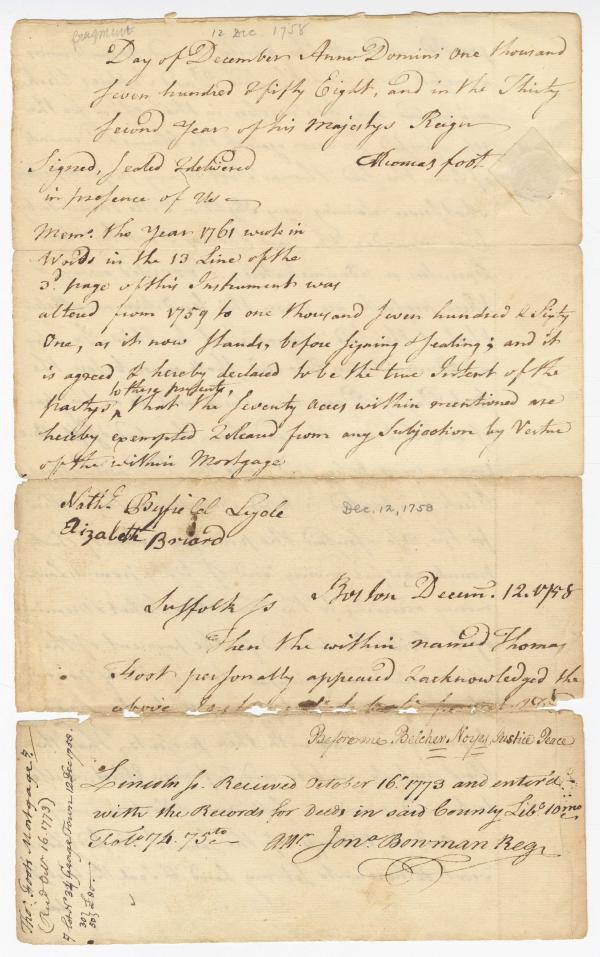 fragment
12 Dec 1758
Day of December Anno Domini One thousand
Seven hundred & fifty Eight, and in the Thirty
Second Year of his Majestys Reign
Signed, Sealed & delivered
Thomas foot
in presence of Us
Memo. the Year 1761 wrote in
Words in the 13 Line of the
3d page of this Instrument was
altered from 1759 to one thousand Seven hundred & Sixty
One, as it now Stands, before Signing & Sealing; and it
is agreed & hereby declared to be the true Intent of the
partys to these presents, that the Seventy Acres within mentioned are
hereby exempted & cleard from any Subjection by Vertue
of the within Mortgage
Nathl Byfield Lyde
Dec. 12, 1758
Elizabeth Briard
Suffolk Ss Boston Decemr. 12. 1758
Then the within named Thomas
Foot personally appeared & acknowledged the
above
Before me Belcher Noyes Justice Peace
Lincoln Ss. Received October 16th 1773 and enter'd
with the Records for Deeds in said County Libo. 10mo
Folo. 74. 75to Attr Jona Bowman Regr
Thos. Foots Mortgage
(Recd Octr 16. 1773)
Lot No. 34 George Town 12 Dec 1758